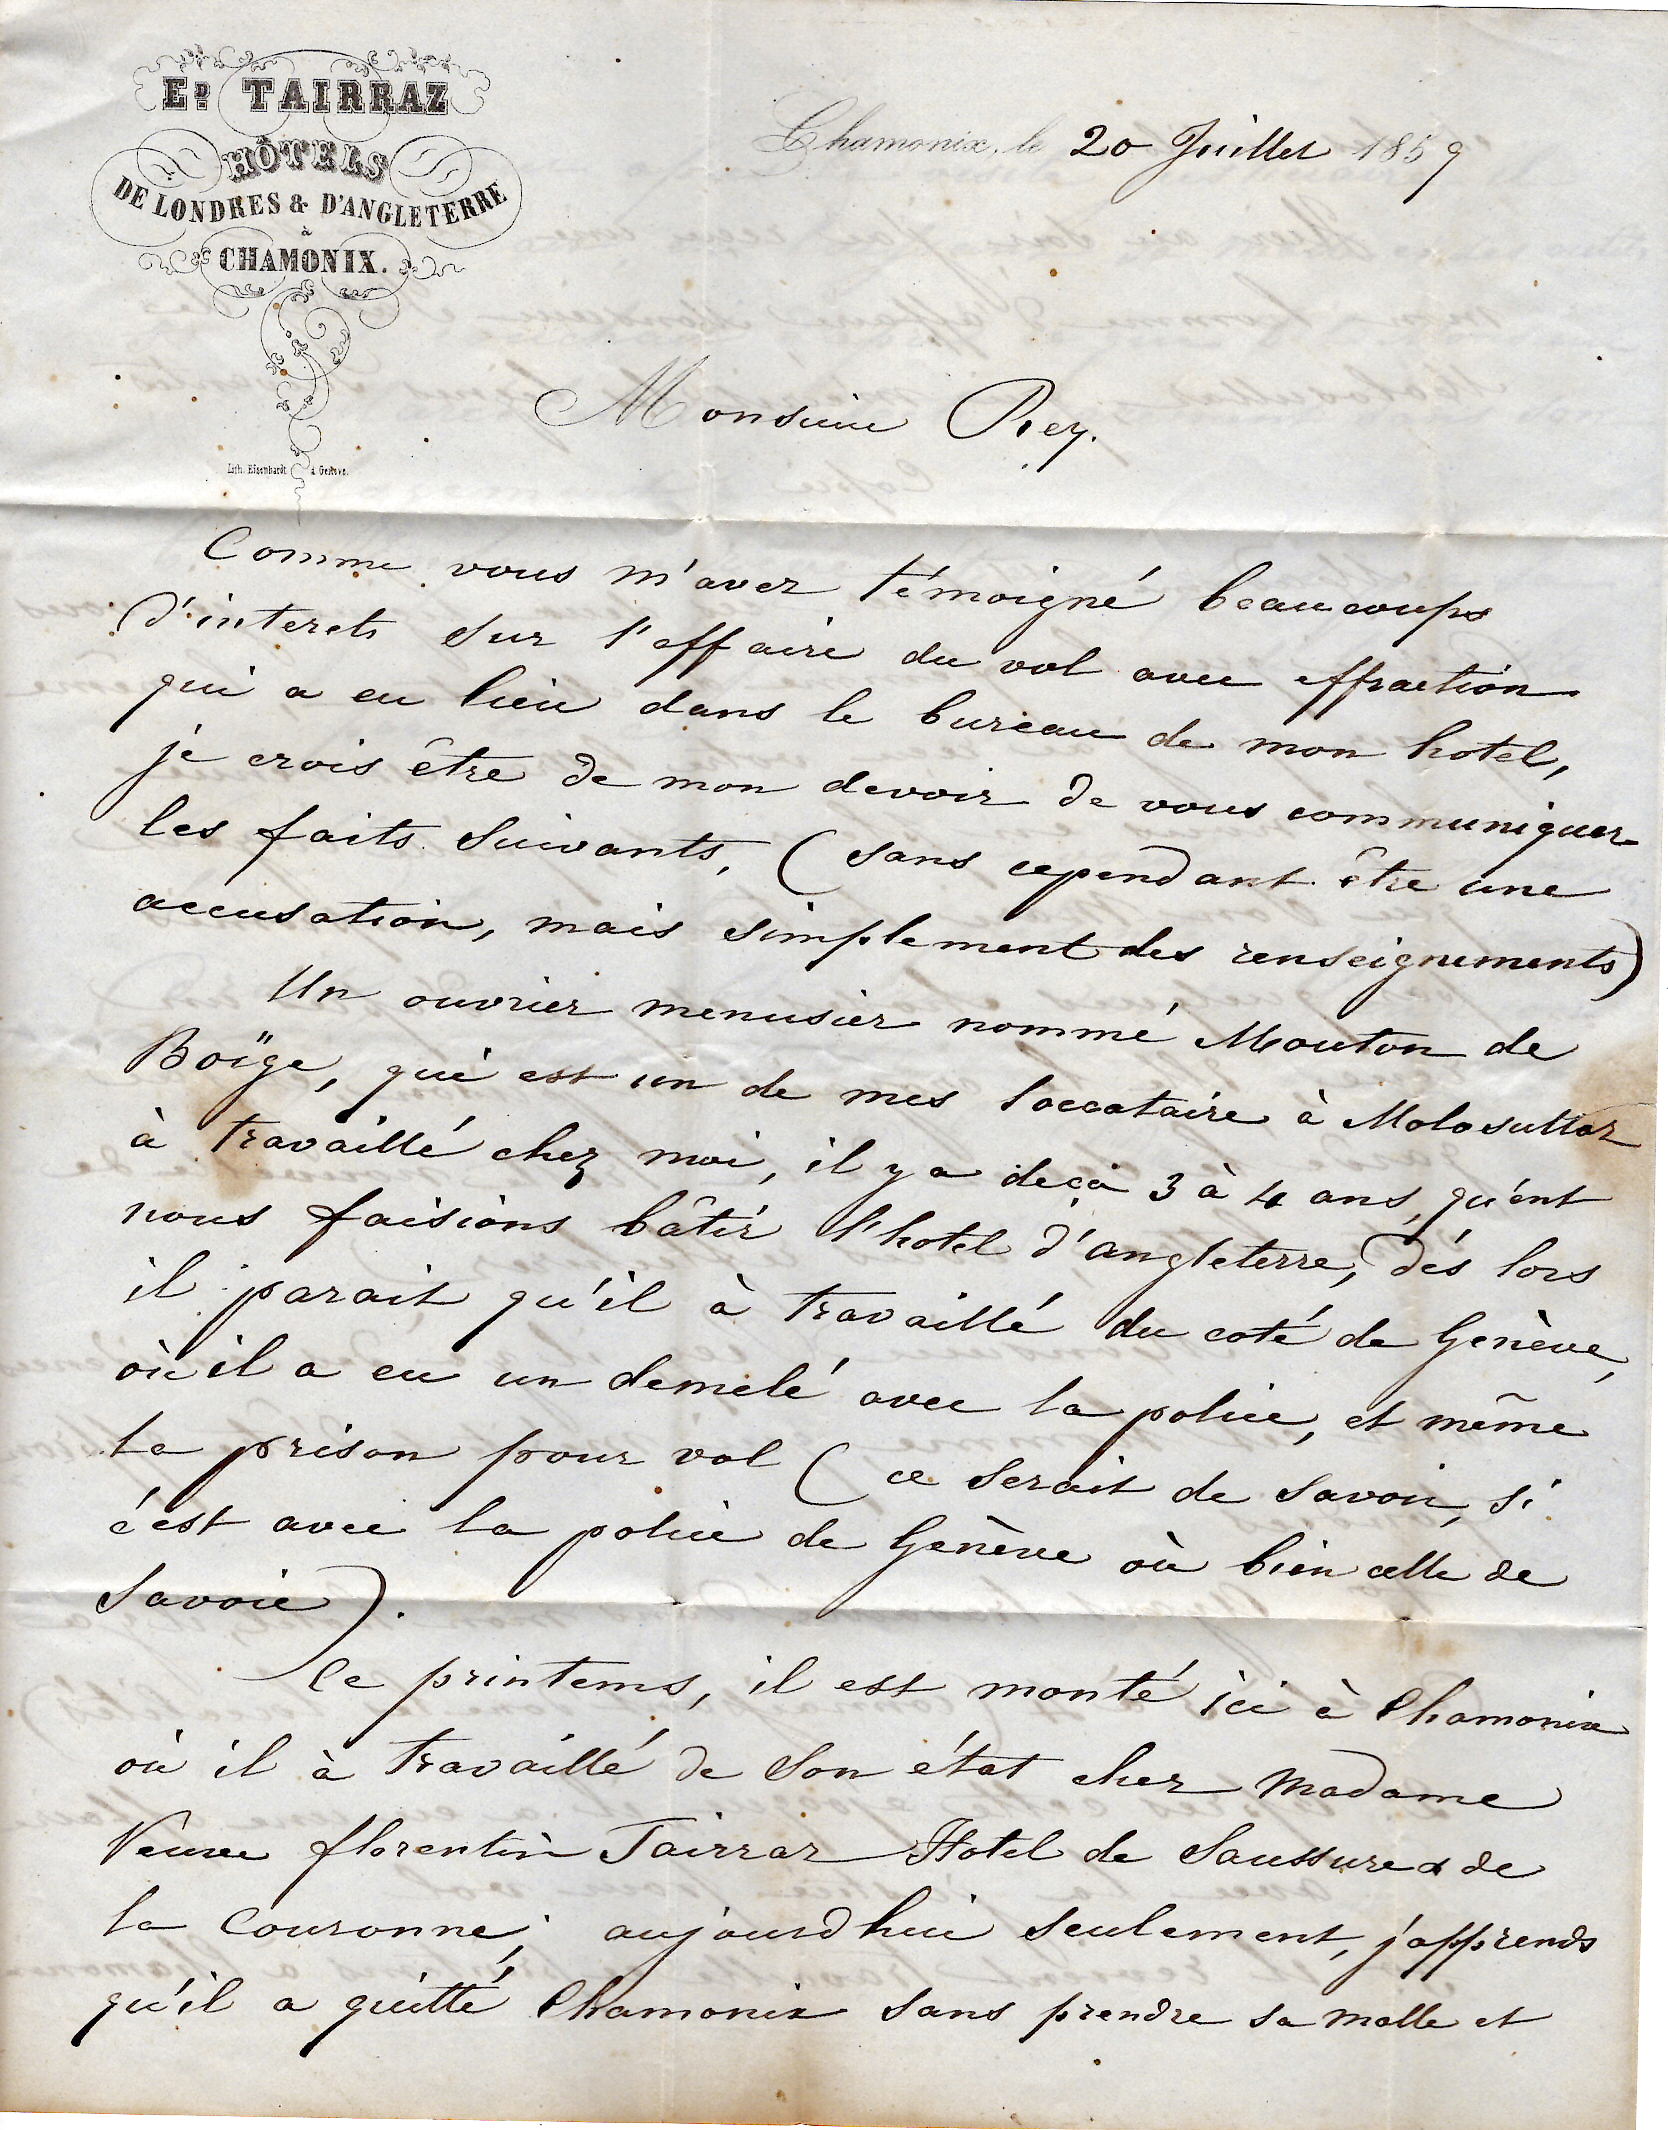 ED. TAIRRAZ
HÔTELS
DE LONDRES & D'ANGLETERRE
à
CHAMONIX.
Lith. Eisenhardt à Genève.
Chamonix, le 20 Juillet 1859
Monsieur Rey.
Comme vous m'avez témoigné beaucoups
d'interets sur l'affaire du vol avec effraction
qui a eu lieu dans le bureau de mon hotel,
je crois être de mon devoir de vous communiquer
les faits suivants, (sans cependant être une
accusation, mais simplement des renseignements)
Un ouvrier menusier nommé Mouton de
Boïge, qui est un de mes loccataire à Molosullaz
à travaillé chez moi, il y a deçà 3 à 4 ans, qu'ent
nous faisions bâtir l'hotel d'angleterre, dés lors
il parait qu'il à travaillé du coté de Genève,
où il a eu un demelé avec la police, et même
la prison pour vol (ce serait de savoir, si
c'est avec la police de Genève où bien celle de
Savoie).
Ce printems, il est monté ici à Chamonix
où il à travaillé de son état chez Madame
Veuve florentin Tairraz Hotel de Saussure & de
la Couronne; aujourdhui seulement, j'apprends
qu'il a quitté Chamonix sans prendre sa malle et